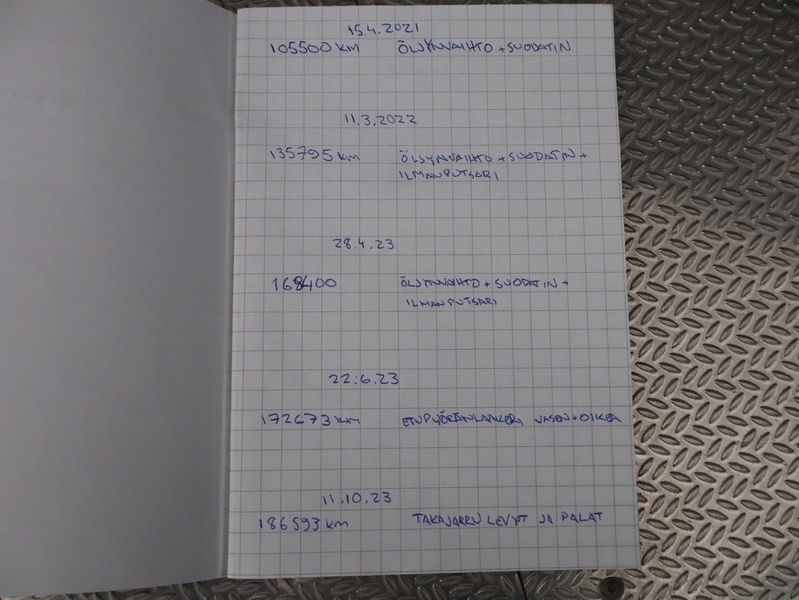 15.4.2021
105500 KM ÖLJYNVAIHTO + SUODATIN
11.3.2022
135795 KM ÖLJYNVAIHTO + SUODATIN +
ILMANPUTSARI
28.4.23
168400 ÖLJYNVAIHTO + SUODATIN +
ILMANPUTSARI
22.6.23
172673 KM ETUPYÖRÄNLAAKERI VASEN + OIKEA
11.10.23
186593 KM TAKAJARRU LEVYT JA PALAT